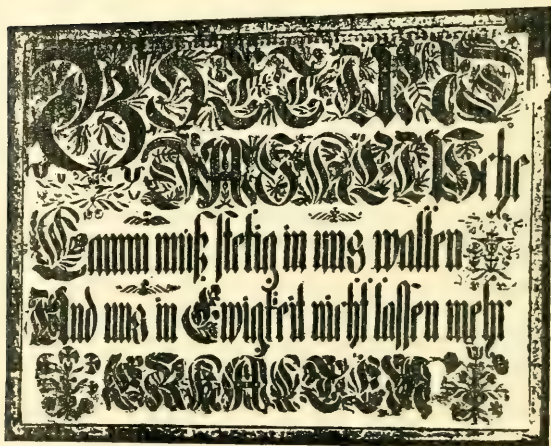 GOTT UND
DAS KEUSche
Lamm muß stetig in uns walten
Und uns in Ewigkeit nicht lassen mehr
ERKALTEN